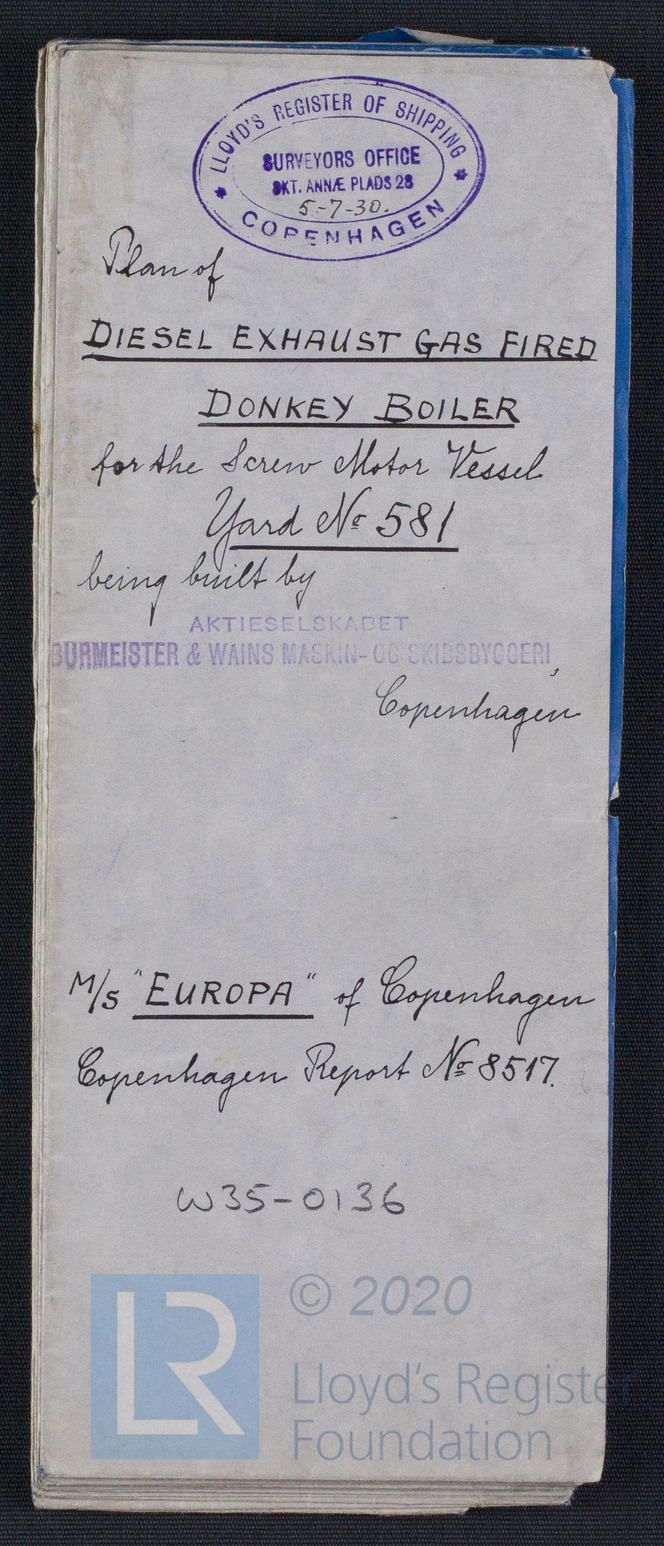 LLOYD'S REGISTER OF SHIPPING
SURVEYORS OFFICE
SKT. ANNÆ PLADS 28
5-7-30.
COPENHAGEN
Plan of
DIESEL EXHAUST GAS FIRED
DONKEY BOILER
for the Screw Motor Vessel
Yard No 581
being built by
AKTIESELSKABET
BURMEISTER & WAINS MASKIN- OG SKIBSBYGGERI,
Copenhagen
M/S "EUROPA" of Copenhagen
Copenhagen Report No 8517.
W35-0136
LR
© 2020
Lloyd's Register
Foundation